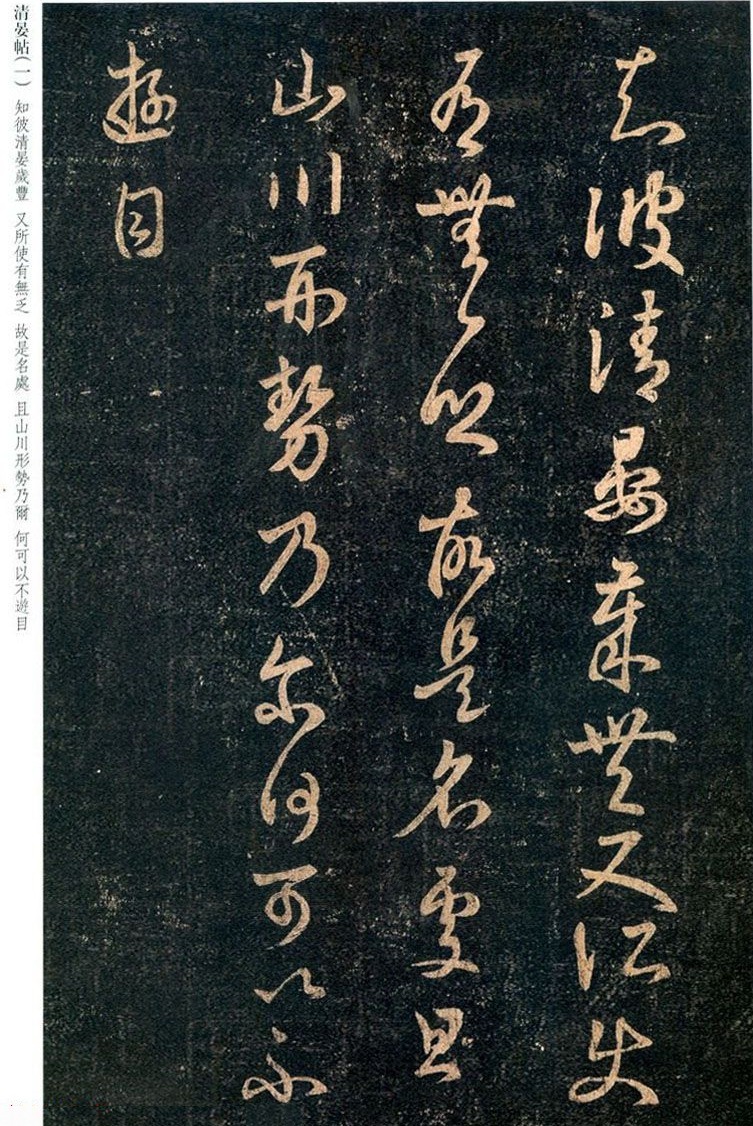 知彼清晏歲豐又所使
有無乏故是名處且
山川形勢乃爾何可以不
遊目
清晏帖(一) 知彼清晏歲豐 又所使有無乏 故是名處 且山川形勢乃爾 何可以不遊目